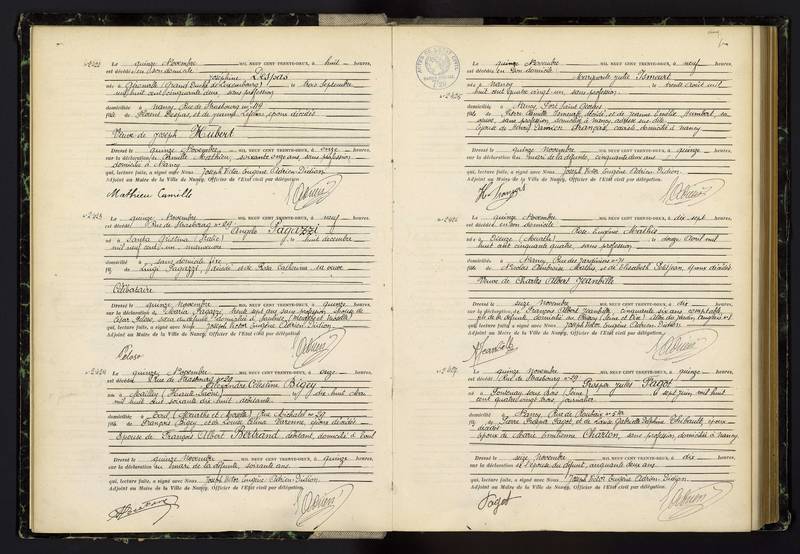 N°2422 Le quinze Novembre MIL NEUF CENT TRENTE-DEUX, à huit heures,
est décédée en son domicile Joséphine Despas
née à (Grand Duché de Luxembourg) le trois septembre
mil huit cent cinquante deux sans profession
domiciliée à Nancy, Rue de Strasbourg n° 119
fille de Florent Despas, et de époux décédés
Veuve de Joseph Hubert
Dressé le quinze Novembre, MIL NEUF CENT TRENTE-DEUX, à onze heures,
sur la déclaration de Camille Mathieu, soixante onze ans sans profession
domicilié à Nancy
qui, lecture faite, a signé avec Nous Joseph Victor Eugène Adrien-Didion,
Adjoint au Maire de la Ville de Nancy, Officier de l'Etat civil par délégation.
Mathieu Camille Adrien
N°2423 Le quinze Novembre MIL NEUF CENT TRENTE-DEUX, à neuf heures,
est décédé Rue de Strasbourg n° 29 Angelo Pagazzi
né à Santa Cristina (Italie) le huit décembre
mil neuf cent un manœuvre
domicilié à sans domicile fixe
fils de Luigi Pagazzi, décédé et de Rosa sa veuve
Célibataire
Dressé le quinze novembre MIL NEUF CENT TRENTE-DEUX, à quinze heures,
sur la déclaration de Maria Pagazzi, trente sept ans sans profession, épouse de
Peloso, sœur du défunt, domiciliée à (Meurthe et Moselle)
qui, lecture faite, a signé avec Nous Joseph Victor Eugène Adrien-Didion,
Adjoint au Maire de la Ville de Nancy, Officier de l'Etat civil par délégation.
Peloso Adrien
N°2424 Le quinze Novembre MIL NEUF CENT TRENTE-DEUX, à onze heures,
est décédée Rue de Strasbourg n° 29 Célestine Bigey
née à Mailley (Haute-Saône) le dix huit
mil huit cent soixante dix huit débitante
domiciliée à Toul (Meurthe et Moselle) Rue Michelet n° 29
fille de François Bigey et de Louise Varenne, époux décédés
Epouse de François Albert Bertrand débitant, domicilié à Toul
Dressé le quinze novembre MIL NEUF CENT TRENTE-DEUX, à quinze heures,
sur la déclaration du mari de la défunte, soixante ans
qui, lecture faite, a signé avec Nous Joseph Victor Eugène Adrien-Didion,
Adjoint au Maire de la Ville de Nancy, Officier de l'Etat civil par délégation.
Bertrand Adrien
N°2425 Le quinze Novembre MIL NEUF CENT TRENTE-DEUX, à neuf heures,
est décédée en son domicile Marguerite Julie
née à Nancy le trente août mil
huit cent quatre vingt un sans profession,
domiciliée à Nancy, Port Saint Georges
fille de Pierre Camille décédé, et de Jeanne Emélie Humbert, sa
veuve, sans profession, domiciliée à Nancy
épouse de Henri François, domicilié à Nancy
Dressé le quinze novembre MIL NEUF CENT TRENTE-DEUX, à quinze heures,
sur la déclaration du mari de la défunte, cinquante deux ans
qui, lecture faite, a signé avec Nous Joseph Victor Eugène Adrien-Didion,
Adjoint au Maire de la Ville de Nancy, Officier de l'Etat civil par délégation.
H. François Adrien
N°2426 Le quinze Novembre MIL NEUF CENT TRENTE-DEUX, à dix sept heures,
est décédée en son domicile Rose Eugénie Mathis
née à Dieuze (Moselle) le douze Avril mil
huit cent cinquante quatre, sans profession,
domiciliée à Nancy, Rue des Jardiniers n°
fille de Nicolas Ambroise Mathis, et de Elisabeth époux décédés
Veuve de Charles Albert Jeanville
Dressé le seize Novembre MIL NEUF CENT TRENTE-DEUX, à dix heures,
sur la déclaration de François Albert Jeanville, cinquante six ans, comptable,
fils de la défunte, domicilié au (Seine et Oise)
qui, lecture faite, a signé avec Nous Joseph Victor Eugène Adrien-Didion,
Adjoint au Maire de la Ville de Nancy, Officier de l'Etat civil par délégation.
Jeanville Adrien
N°2427 Le quinze novembre MIL NEUF CENT TRENTE-DEUX, à quinze heures,
est décédé Rue de Strasbourg n° 29 Prosper Jules Pagot
né à Fontenay sous Bois (Seine) le sept juin, mil huit
cent quatre vingt trois journalier
domicilié à Nancy, Rue de Roubaix n° 5 bis
fils de Pierre Pagot, et de Louise Delphine Thibault, époux
décédés
époux de Marie Emilienne Charton, sans profession, domiciliée à Nancy
Dressé le seize novembre MIL NEUF CENT TRENTE-DEUX, à dix heures,
sur la déclaration de l'épouse du défunt, cinquante deux ans
qui, lecture faite, a signé avec Nous Joseph Victor Eugène Adrien-Didion,
Adjoint au Maire de la Ville de Nancy, Officier de l'Etat civil par délégation.
Pagot Adrien